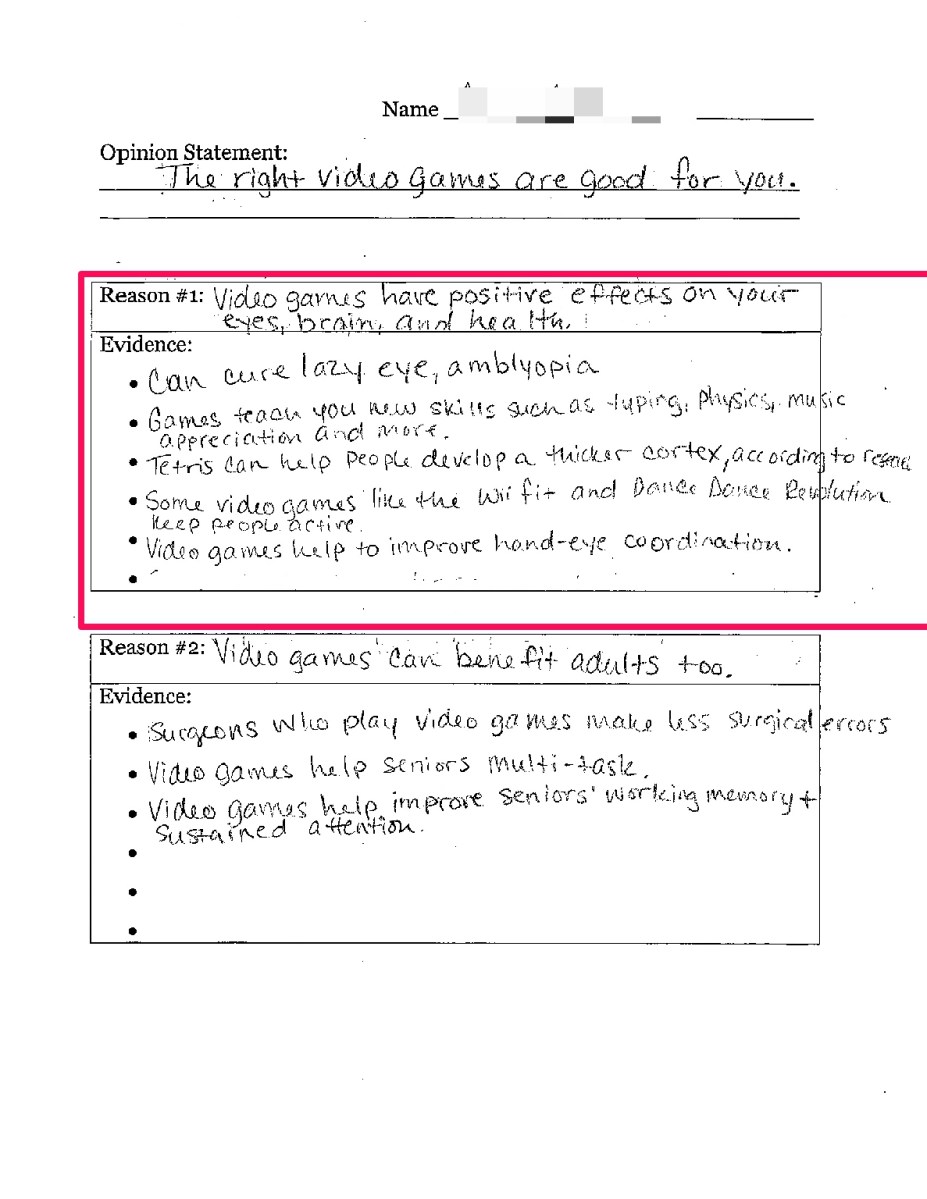 Name
Opinion Statement:
The right video games are good for you.
Reason #1: Video games have positive effects on your
eyes, brain, and health.
Evidence:
• Can cure lazy eye, amblyopia
• Games teach you new skills such as typing, physics, music
appreciation and more.
• Tetris can help people develop a thicker cortex, according to
• Some video games like the Wii fit and Dance Dance Revolution
keep people active.
• Video games help to improve hand-eye coordination.
•
Reason #2: Video games can benefit adults too.
Evidence:
• Surgeons who play video games make less surgical errors
• Video games help seniors multi-task.
• Video games help improve seniors' working memory +
sustained attention.
•
•
•